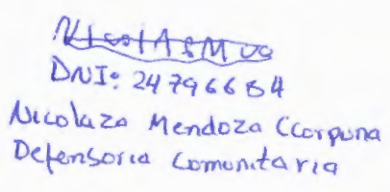 DNI: 24796684
Nicolaza Mendoza Ccorpuna
Defensoria Comunitaria